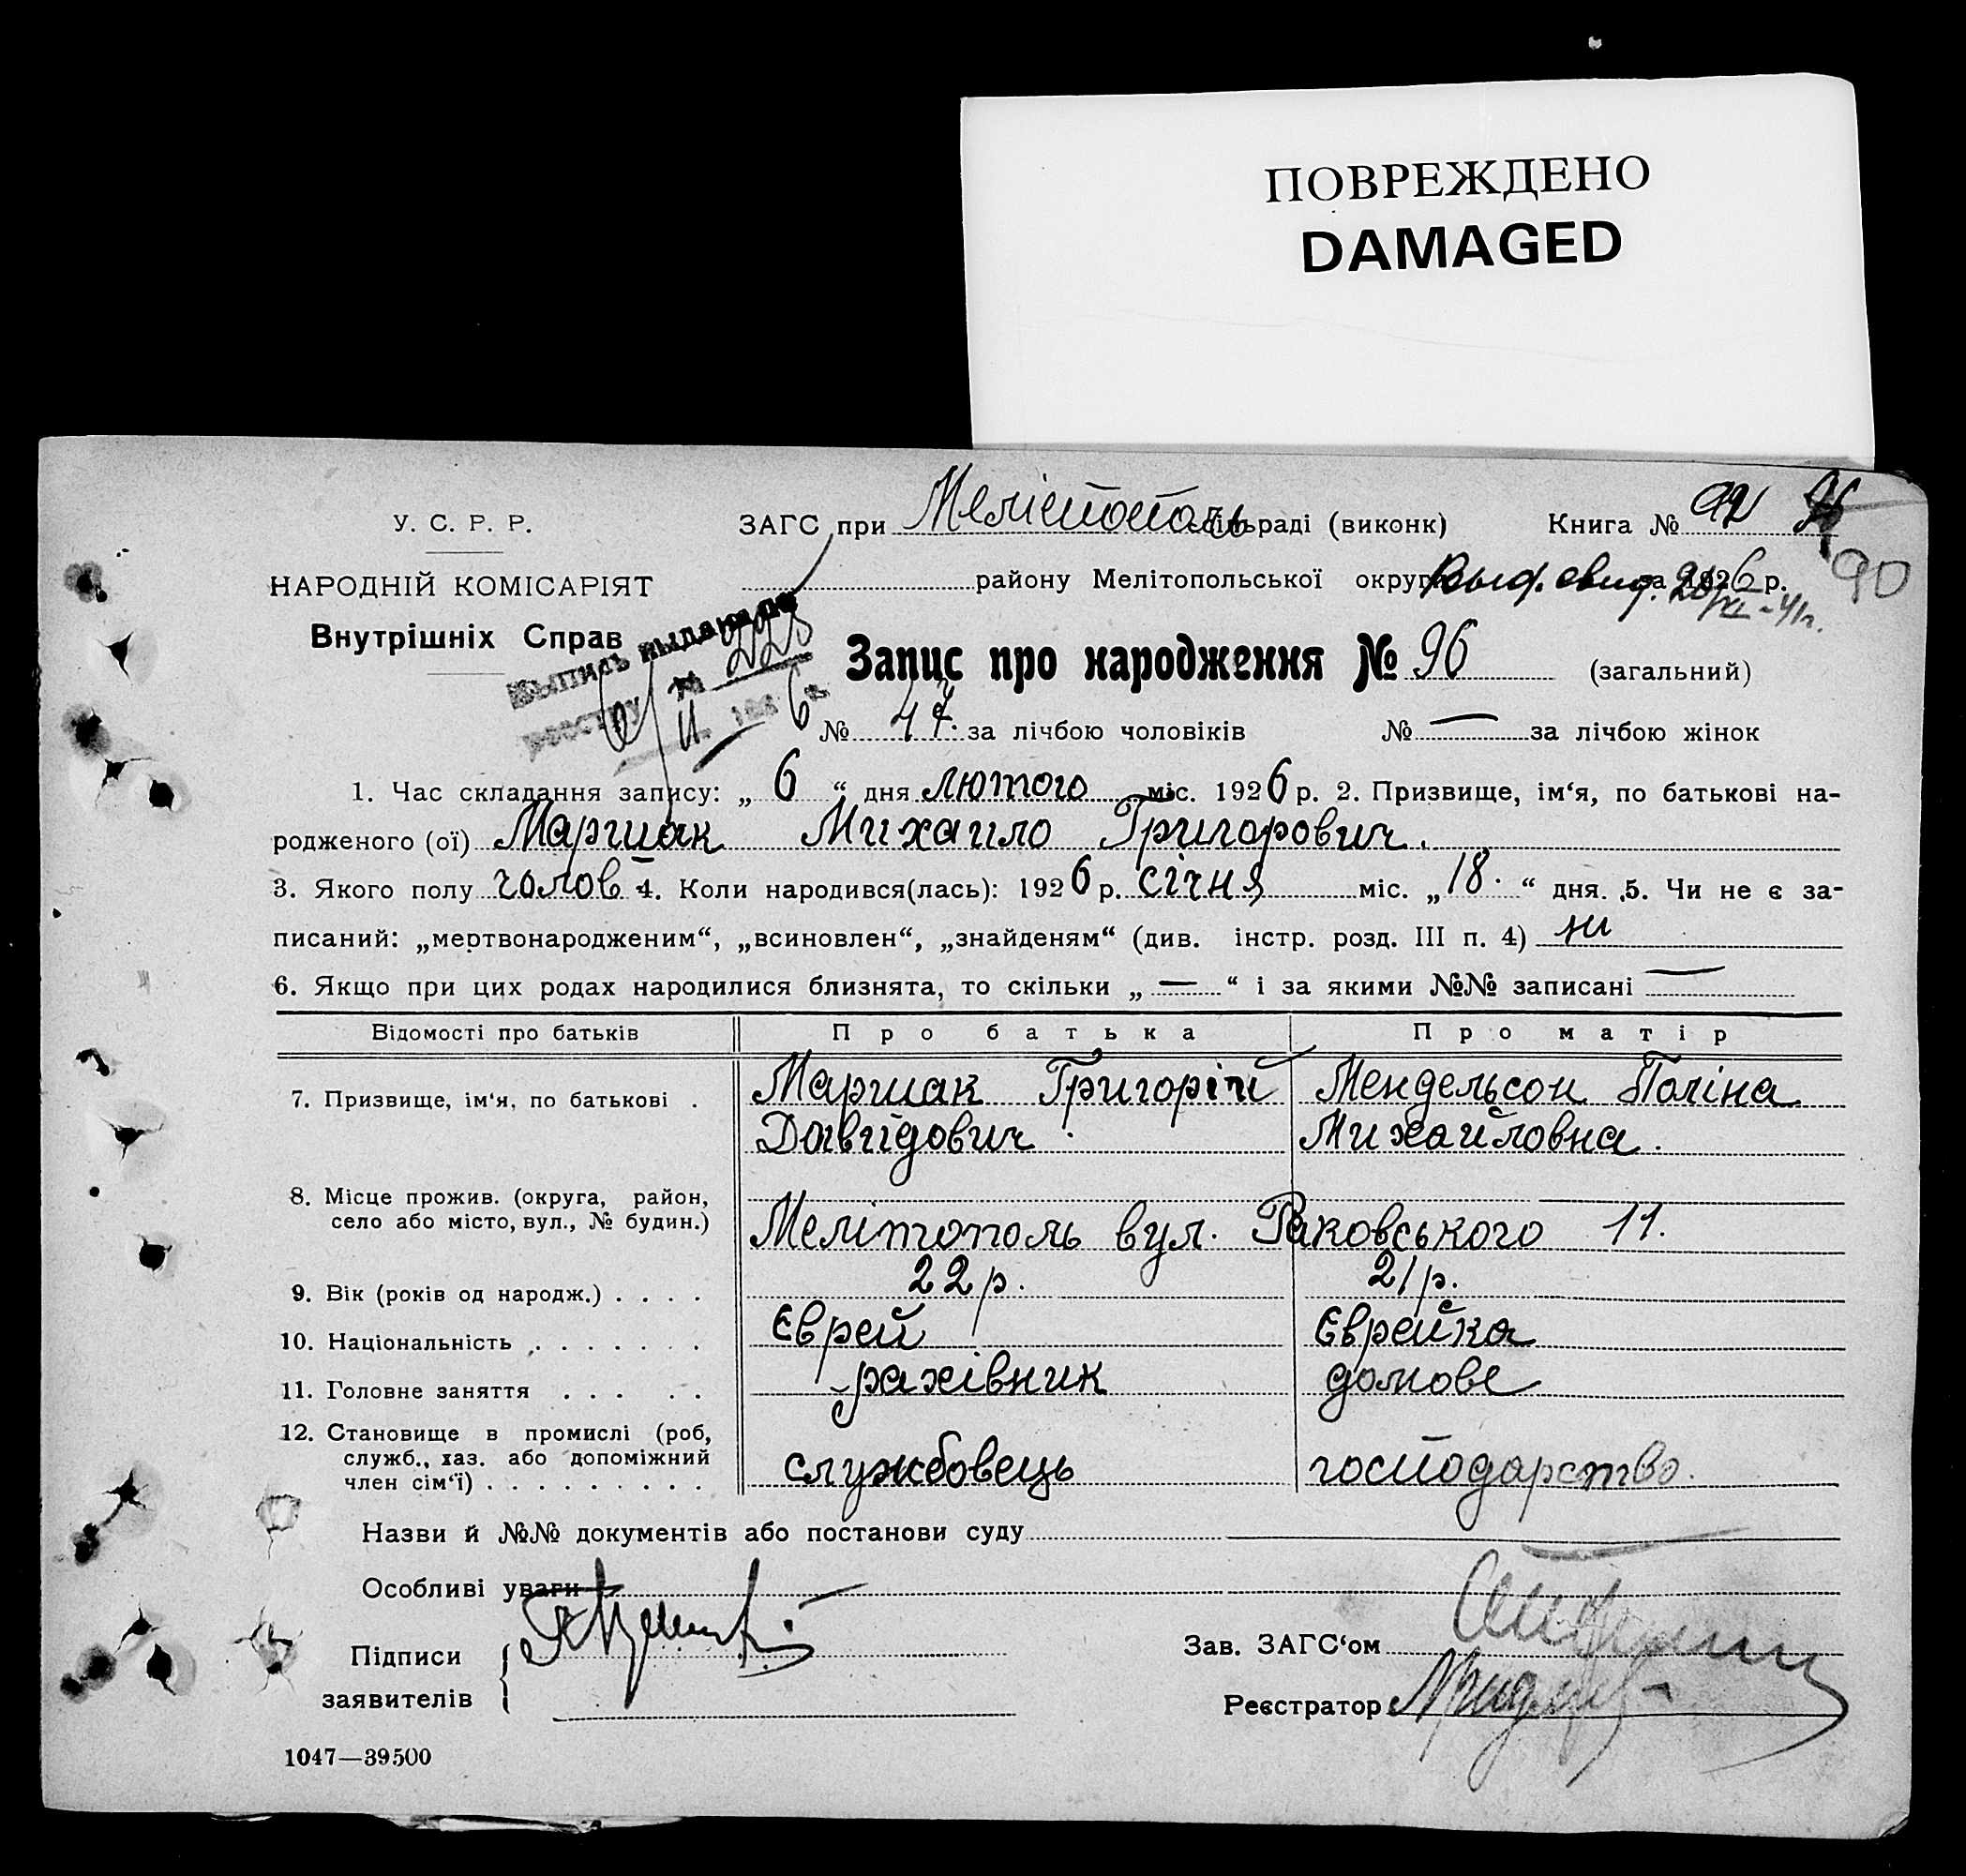 ПОВРЕЖДЕНО
DAMAGED
У. С. Р. Р.
НАРОДНІЙ КОМІСАРІЯТ
Внутрішніх Справ
ЗАГС при Мелітополь раді (виконк) Книга №
району Мелітопольської округи за 1926 р. 90
Выпись выдана по
реестру № 228
Запис про народження № 96 (загальний)
№ 47. за лічбою чоловіків № — за лічбою жінок
1. Час складання запису: „ 6 “ дня лютого міс. 1926 р. 2. Призвище, ім‘я, по батькові на-
родженого (ої) Маршак Михаило Григорович.
3. Якого полу чолов 4. Коли народився(лась): 1926 р. січня міс. „ 18. “ дня. 5. Чи не є за-
писаний: „мертвонародженим“, „всиновлен“, „знайденям“ (див. інстр. розд. III п. 4) ни
6. Якщо при цих родах народилися близнята, то скільки „ — “ і за якими №№ записані —
Відомості про батьків Про батька Про матір
7. Призвище, ім‘я, по батькові . Маршак Григорій Мендельсон Поліна
Давидович Михайловна.
8. Місце прожив. (округа, район,
село або місто, вул., № будин.) Мелітополь вул. Раковського 11.
9. Вік (років од народж.) . . . . 22 р. 21 р.
10. Національність . . . . . . . Єврей Єврейка
11. Головне заняття . . . . . рахівник домове
12. Становище в промислі (роб,
служб., хаз. або допоміжний
член сім‘ї) . . . . . . . . . службовець господарство.
Назви й №№ документів або постанови суду
Особливі уваги
Підписи
заявителів
Зав. ЗАГС‘ом
Реєстратор
1047—39500